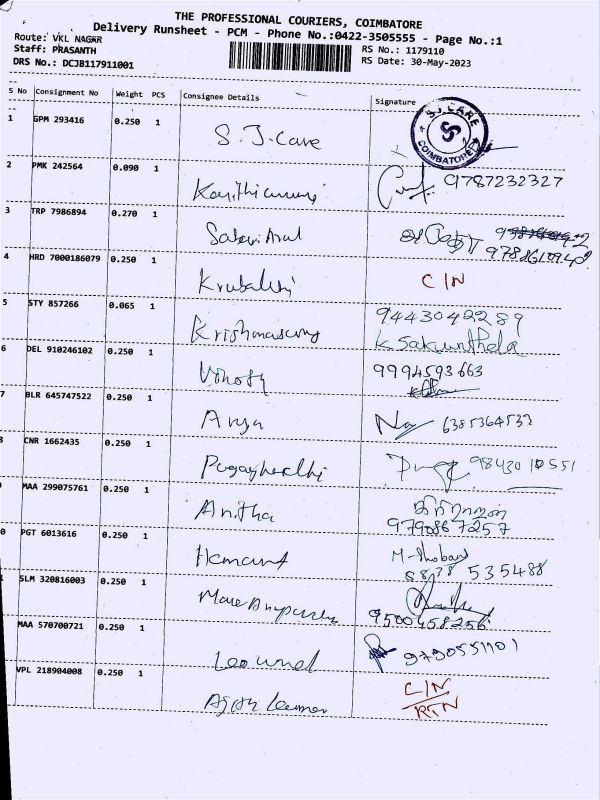 THE PROFESSIONAL COURIERS, COIMBATORE
Delivery Runsheet - PCM - Phone No.:0422-3505555 - Page No.:1
Route: VKL NAGAR
RS No.: 1179110
Staff: PRASANTH
RS Date: 30-May-2023
DRS No.: DCJB117911001
S No Consignment No Weight PCS Consignee Details Signature
1 GPM 293416 0.250 1 S. J. Care S.J. CARE COIMBATORE
2 PMK 242564 0.090 1 9787232327
3 TRP 7986894 0.270 1
4 HRD 7000186079 0.250 1 C/N
5 STY 857266 0.065 1 9443042289
K Sakunthela
6 DEL 910246102 0.250 1 Vinoth 9994593663
7 BLR 645747522 0.250 1 Arya 6385364532
8 CNR 1662435 0.250 1 9843010551
MAA 299075761 0.250 1 Anitha
9790867257
0 PGT 6013616 0.250 1 Hemant
535488
SLM 320816003 0.250 1
9500458256
MAA 570700721 0.250 1 9790551101
VPL 218904008 0.250 1 C/N
RTN